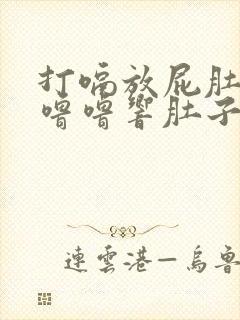 打嗝放屁肚
噜噜響肚子
連雲港—烏魯